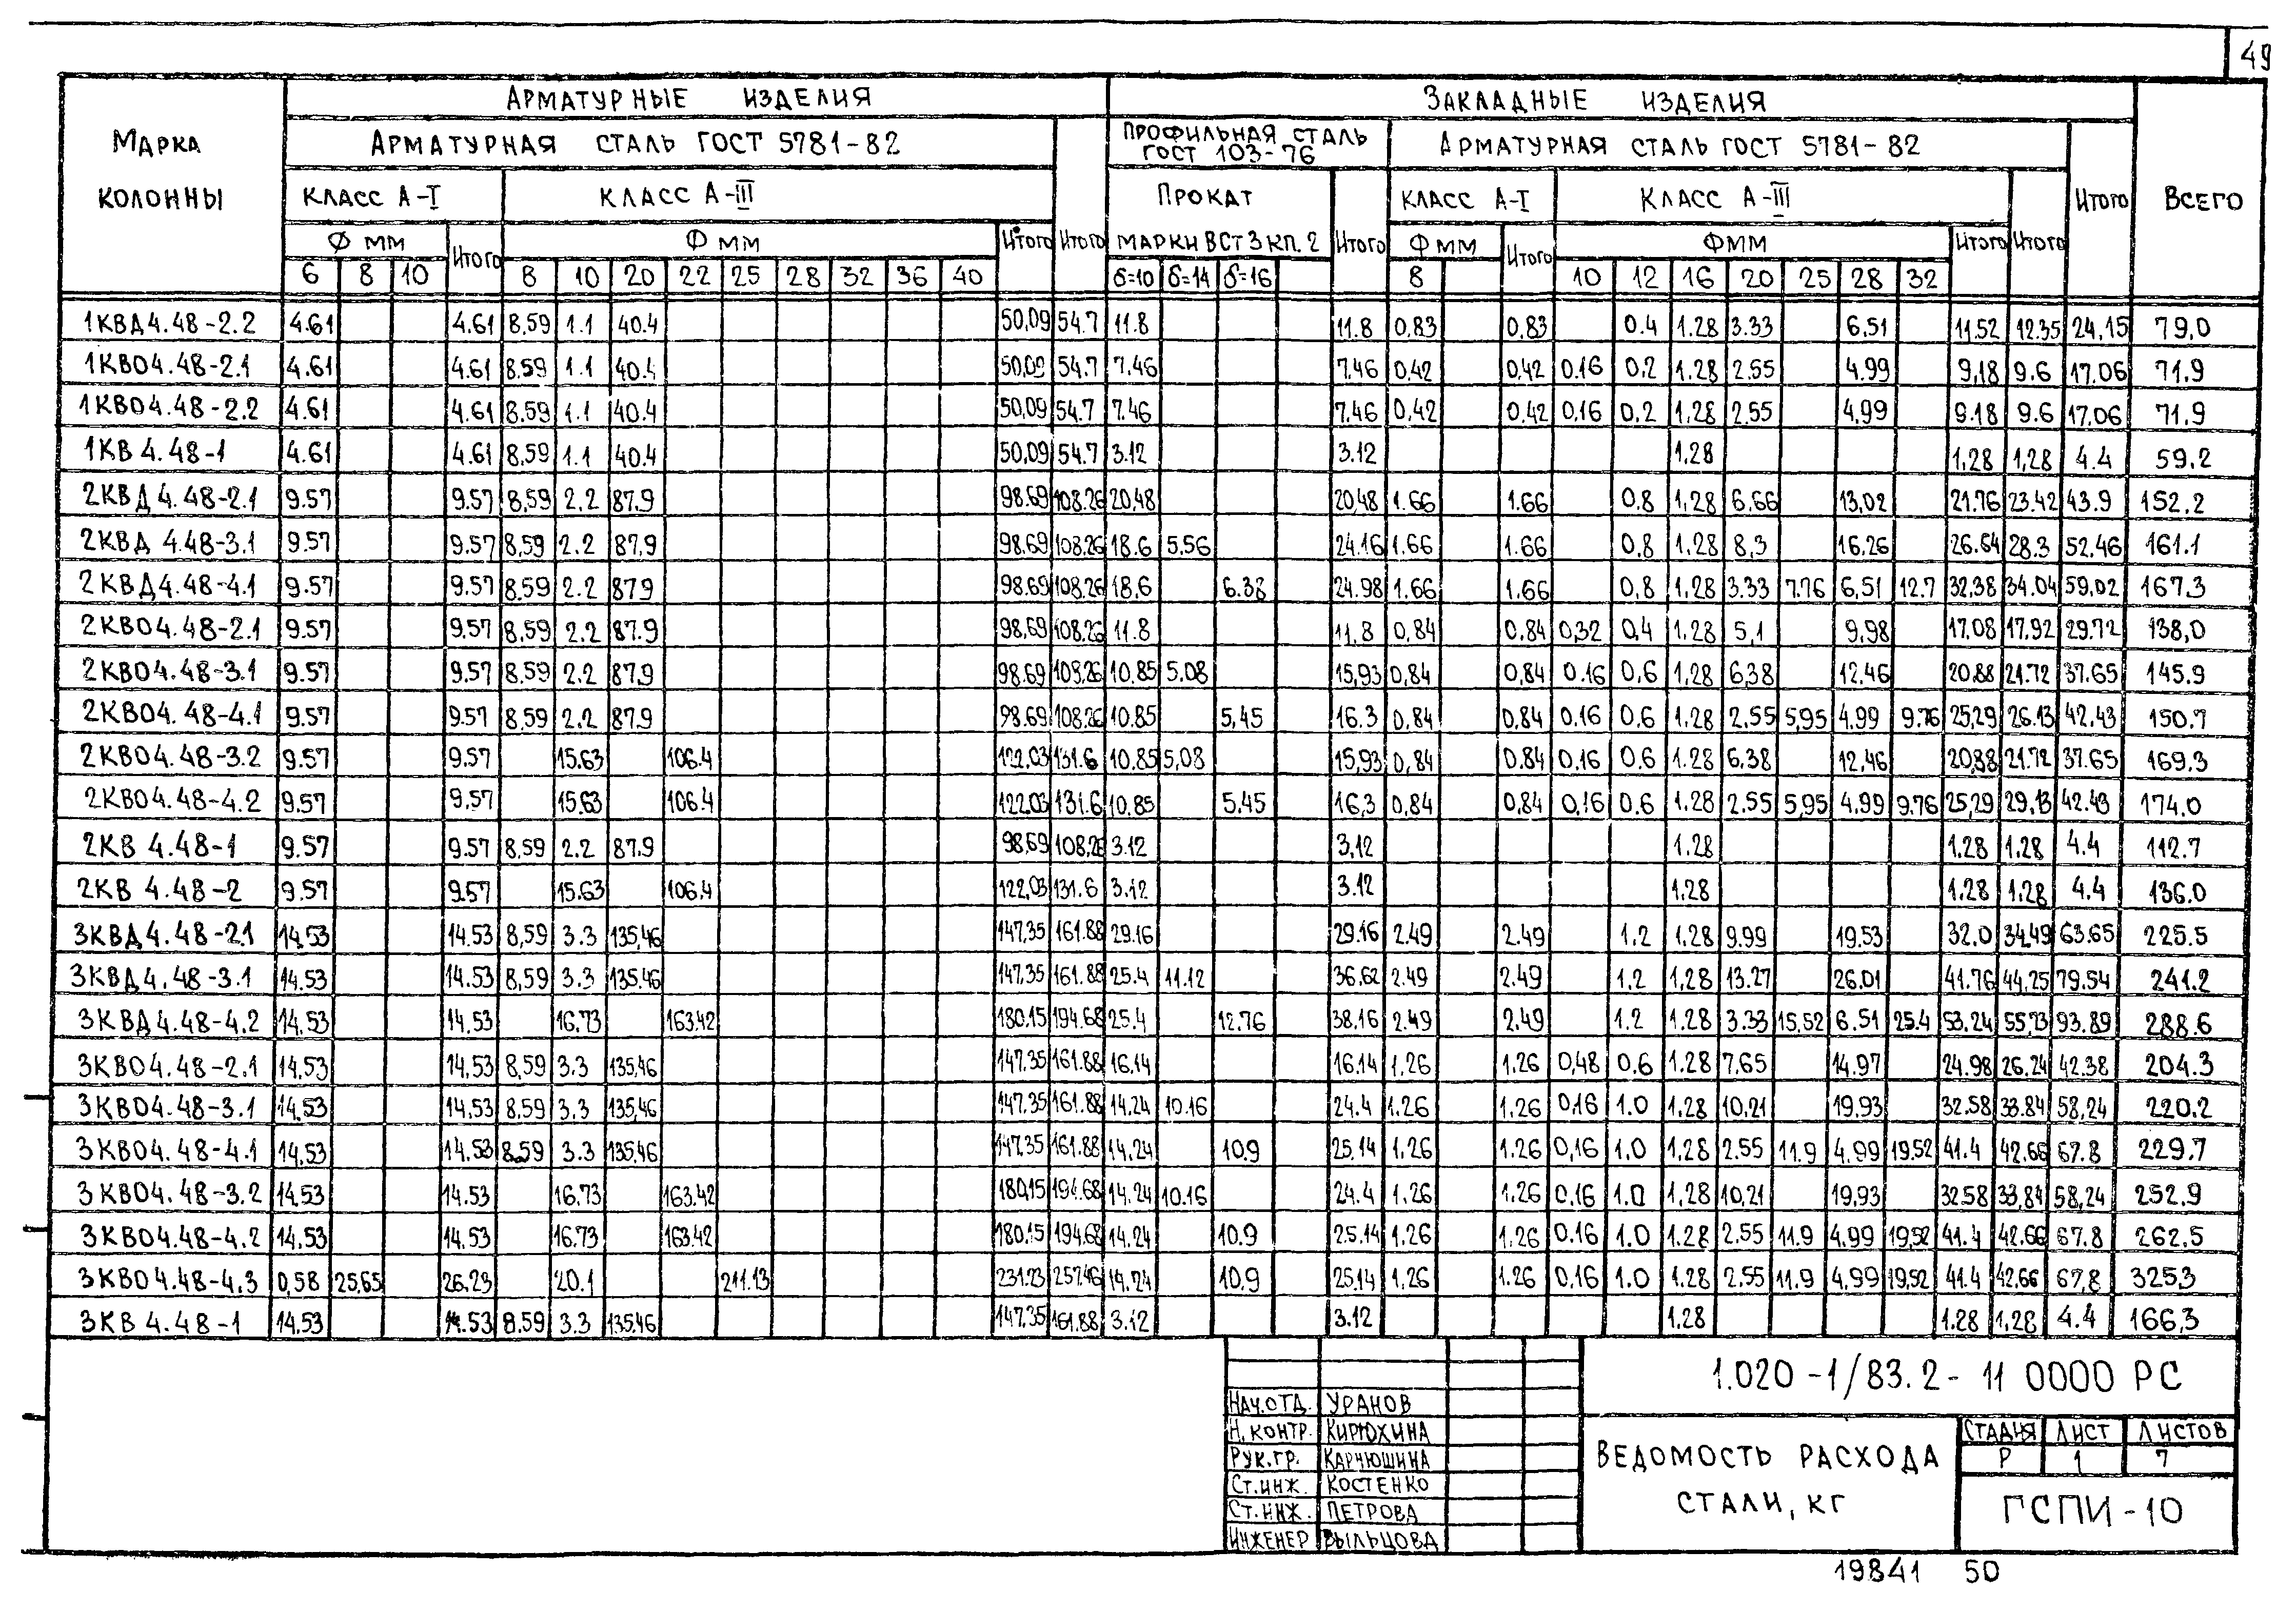 49
МАРКА КОЛОННЫ
АРМАТУРНЫЕ ИЗДЕЛИЯ
ЗАКЛАДНЫЕ ИЗДЕЛИЯ
ВСЕГО
АРМАТУРНАЯ СТАЛЬ ГОСТ 5781-82
ИТОГО
ПРОФИЛЬНАЯ СТАЛЬ ГОСТ 103-76
АРМАТУРНАЯ СТАЛЬ ГОСТ 5781-82
ИТОГО
КЛАСС А-I
КЛАСС А-III
ПРОКАТ
ИТОГО
КЛАСС А-I
КЛАСС А-III
ИТОГО
Ф ММ
ИТОГО
Ф ММ
ИТОГО
МАРКИ ВСТ3КП.2
Ф ММ
ИТОГО
ФММ
ИТОГО
6 8 10 8 10 20 22 25 28 32 36 40 δ=10 δ=14 δ=16 8 10 12 16 20 25 28 32
1КВД4.48-2.2 4.61 4.61 8,59 1.1 40.4 50,09 54.7 11.8 11.8 0,83 0,83 0.4 1.28 3.33 6,51 11,52 12.35 24,15 79,0
1КВО4.48-2.1 4.61 4.61 8.59 1.1 40.4 50,09 54.7 7.46 7.46 0,42 0,42 0.16 0,2 1.28 2.55 4.99 9,18 9.6 17.06 71.9
1КВО4.48-2.2 4.61 4.61 8.59 1.1 40.4 50,09 54.7 7.46 7.46 0,42 0.42 0,16 0,2 1,28 2.55 4,99 9.18 9.6 17,06 71.9
1КВ 4.48-1 4.61 4.61 8,59 1.1 40.4 50,09 54.7 3.12 3.12 1,28 1,28 1,28 4.4 59.2
2КВД 4.48-2.1 9.57 9.57 8,59 2,2 87,9 98.69 108.26 20,48 20,48 1.66 1.66 0.8 1,28 6,66 13,02 21.76 23.42 43.9 152.2
2КВД 4.48-3.1 9.57 9.57 8,59 2.2 87.9 98.69 108.26 18.6 5.56 24.16 1.66 1.66 0,8 1,28 8,3 16,26 26.64 28.3 52,46 161.1
2КВД4.48-4.1 9.57 9.57 8.59 2.2 87.9 98.69 108.26 18,6 6.38 24.98 1.66 1.66 0,8 1,28 3.33 7.76 6,51 12.7 32,38 34.04 59,02 167.3
2КВО4.48-2.1 9.57 9.57 8,59 2.2 87.9 98,69 108.26 11.8 11,8 0,84 0.84 0,32 0,4 1,28 5,1 9,98 17.08 17,92 29.72 138,0
2КВО4.48-3.1 9.57 9.57 8,59 2.2 87.9 98.69 108.26 10.85 5.08 15,93 0,84 0,84 0.16 0,6 1,28 6,38 12,46 20,88 21.72 37.65 145.9
2КВО4.48-4.1 9.57 9.57 8,59 2.2 87.9 98.69 108.26 10.85 5,45 16.3 0,84 0.84 0.16 0.6 1.28 2.55 5,95 4.99 9.76 25,29 26.13 42.43 150.7
2КВО4.48-3.2 9.57 9.57 15.63 106.4 122,03 131.6 10.85 5,08 15,93 0,84 0.84 0.16 0.6 1.28 6,38 12,46 20,88 21.72 37.65 169.3
2КВО4.48-4.2 9.57 9.57 15.63 106.4 122.03 131.6 10.85 5.45 16,3 0.84 0,84 0,16 0.6 1.28 2.55 5,95 4.99 9.76 25,29 29,13 42.43 174.0
2КВ 4.48-1 9.57 9.57 8,59 2.2 87.9 98,69 108,26 3.12 3,12 1.28 1.28 1.28 4.4 112.7
2КВ 4.48-2 9.57 9.57 15.63 106.4 122,03 131.6 3.12 3.12 1,28 1,28 1,28 4.4 136.0
3КВД4.48-2.1 14.53 14.53 8,59 3.3 135,46 147,35 161.88 29.16 29.16 2.49 2.49 1,2 1,28 9.99 19.53 32.0 34,49 63.65 225.5
3КВД4.48-3.1 14.53 14.53 8,59 3.3 135.46 147,35 161.88 25.4 11.12 36,62 2.49 2.49 1.2 1,28 13.27 26.01 41.76 44,25 79.54 241.2
3КВД4.48-4.2 14.53 14.53 16.73 163.42 180.15 194.68 25.4 12.76 38.16 2.49 2.49 1.2 1.28 3.33 15,52 6.51 25.4 53.24 55,73 93.89 288.6
3КВО4.48-2.1 14,53 14,53 8,59 3.3 135,46 147.35 161.88 16,14 16.14 1,26 1.26 0,48 0.6 1.28 7,65 14.97 24.98 26.24 42.38 204.3
3КВО4.48-3.1 14,53 14,53 8,59 3.3 135,46 147.35 161.88 14.24 10.16 24.4 1.26 1.26 0,16 1.0 1,28 10,21 19,93 32.58 33.84 58,24 220.2
3КВО4.48-4.1 14,53 14.53 8,59 3.3 135,46 147,35 161.88 14.24 10.9 25,14 1,26 1.26 0,16 1.0 1,28 2.55 11.9 4.99 19,52 41.4 42.66 67.8 229.7
3КВО4.48-3.2 14,53 14.53 16.73 163.42 180,15 194.68 14.24 10.16 24.4 1.26 1.26 0.16 1.0 1,28 10,21 19,93 32.58 33,84 58,24 252.9
3КВО4.48-4.2 14.53 14.53 16.73 163.42 180.15 194.68 14.24 10.9 25.14 1.26 1.26 0.16 1.0 1.28 2.55 11.9 4.99 19,52 41.4 42.66 67.8 262.5
3КВО4.48-4.3 0,58 25,65 26.23 20.1 211.13 231.23 257.46 14.24 10,9 25.14 1,26 1.26 0,16 1.0 1.28 2.55 11.9 4,99 19,52 41.4 42,66 67,8 325.3
3КВ 4.48-1 14,53 14.53 8,59 3.3 135,46 147,35 161.88 3.12 3.12 1.28 1.28 1,28 4.4 166,3
1.020-1/83.2-11 0000 РС
НАЧ.ОТД. УРАНОВ
Н.КОНТР. КИРЮХИНА
РУК.ГР. КАРНЮШИНА
СТ.ИНЖ. КОСТЕНКО
СТ.ИНЖ. ПЕТРОВА
ИНЖЕНЕР РЫЛЬЦОВА
ВЕДОМОСТЬ РАСХОДА
СТАЛИ, КГ
СТАДИЯ ЛИСТ ЛИСТОВ
Р 1 7
ГСПИ-10
19841 50